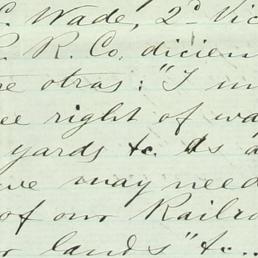 C. Wade, 2d Vic
P. R. Co, dicien
otras: "I
right of wa
yards &c. As a
we may need
of our Railro
lands" &...